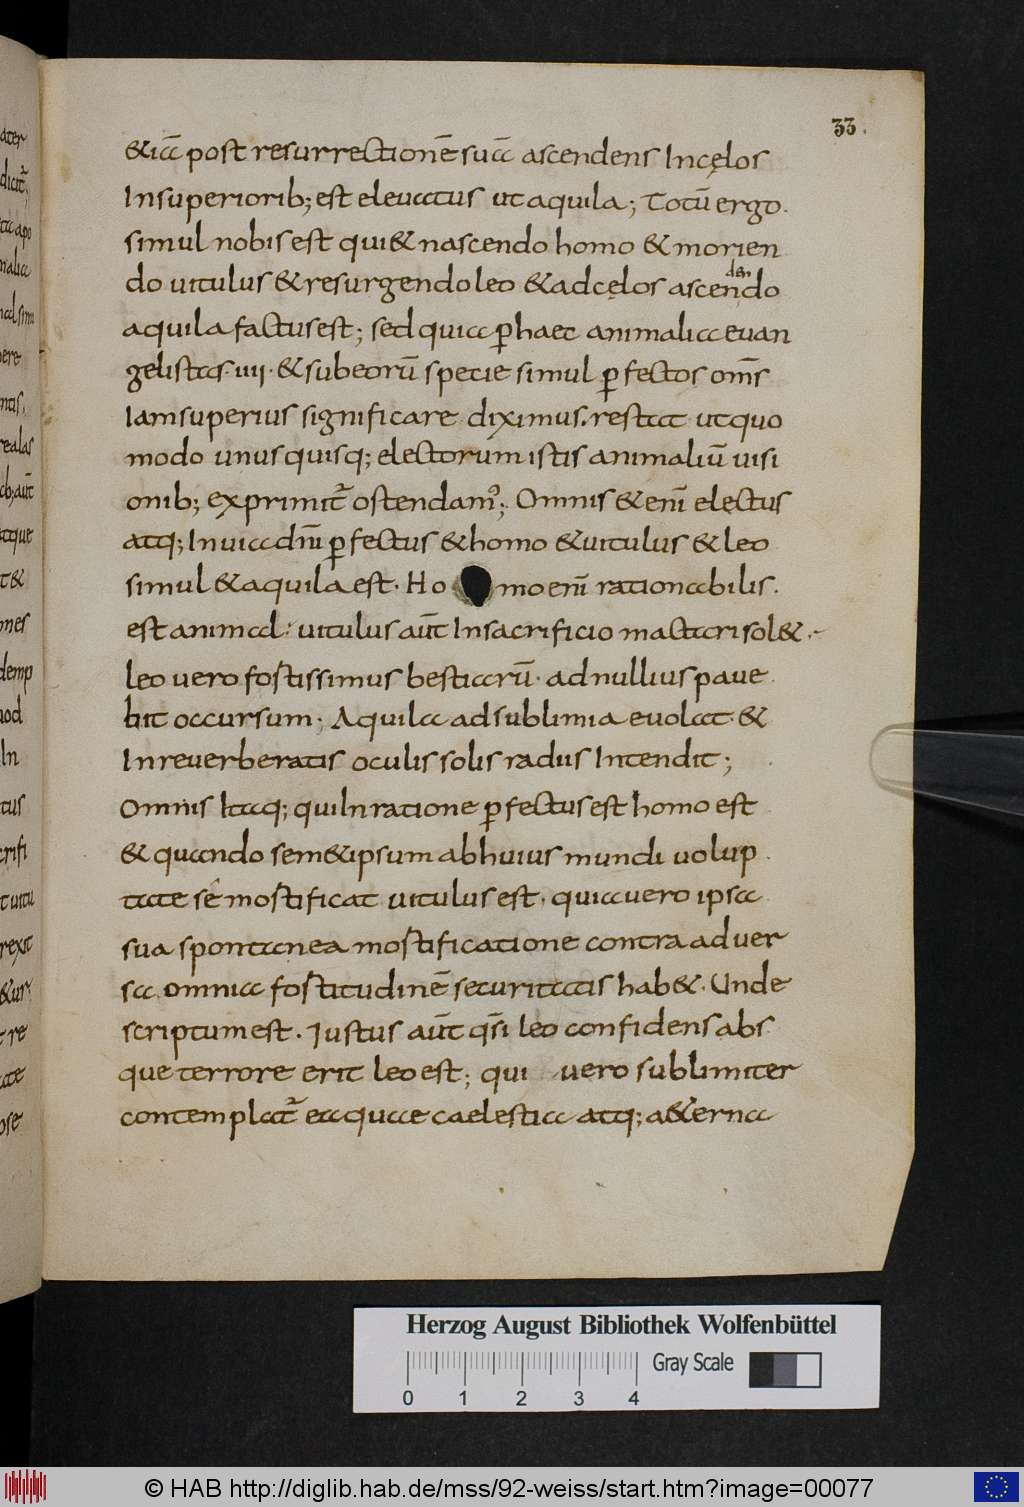 33.
&ia post resurrectionē sua ascendens Incęlos
Insuperiorib; est eleuatus ut aquila; Totū ergo.
simul nobis est qui & nascendo homo & morien
do uitulus & resurgendo leo & adcęlos ascendo
den
aquila factus est; sed quia ꝑ haec animalia euan
gelistas · iiii · & sub eorū specie simul ꝑfectos om̄s
Iam superius significare diximus. restat ut quo
modo unus quisq; electorum istis animaliū uisi
onib; exprimit̄ ostendam᾽; Omnis & enī electus
atq; In uia dn̄i ꝑfectus & homo & uitulus & leo
simul & aquila est · Ho mo enī rationabilis.
est animal: uitulus aūt In sacrificio mactari sol& ·
leo uero fortissimus bestiarū · ad nullius paue
bit occursum; Aquila ad sublimia euolat · &
Inreuerberatis oculis solis radiis Intendit;
Omnis Itaq; qui In ratione ꝑfectus est homo est
& quando sem&ipsum ab huius mundi uolup
tate se mortificat uitulus est · quia uero ipsa
sua spontanea mortificatione contra aduer
sa omnia fortitudinē securitatis hab& · Unde
scriptum est · Iustus aūt qs̄i leo confidens abs
que terrore erit leo est; qui uero sublimiter
contemplat̄ ea quae caelestia atq; a&erna
ater
dicit̄;
ere
ntis.
realas
tque
t &
mes
demp
uod
In
tus
crifi
t uitu
rexit
& ur
re
ate
ose
Herzog August Bibliothek Wolfenbüttel
0 1 2 3 4 Gray Scale
© HAB http://diglib.hab.de/mss/92-weiss/start.htm?image=00077